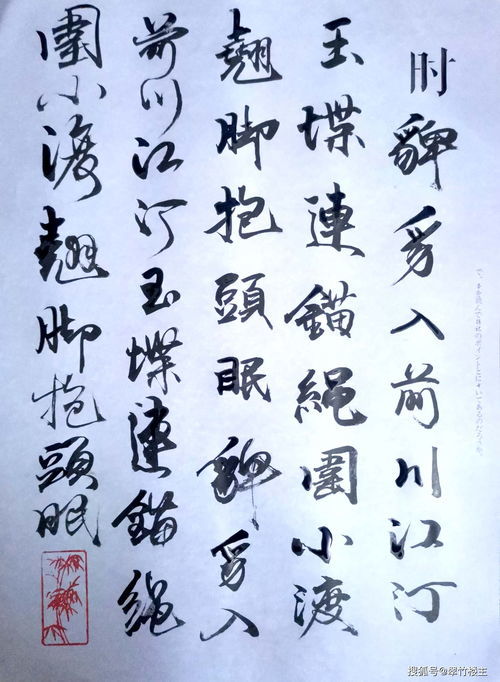 时貏豸入前川江汀
玉堞連錨繩圍小渡
翹脚抱頭眠貏豸入
前川江汀玉堞連錨繩
圍小渡翹脚抱頭眠
搜狐号@翠竹楼主